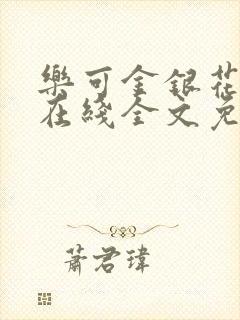 樂可金銀花
在綫全文免
蕭君瑋